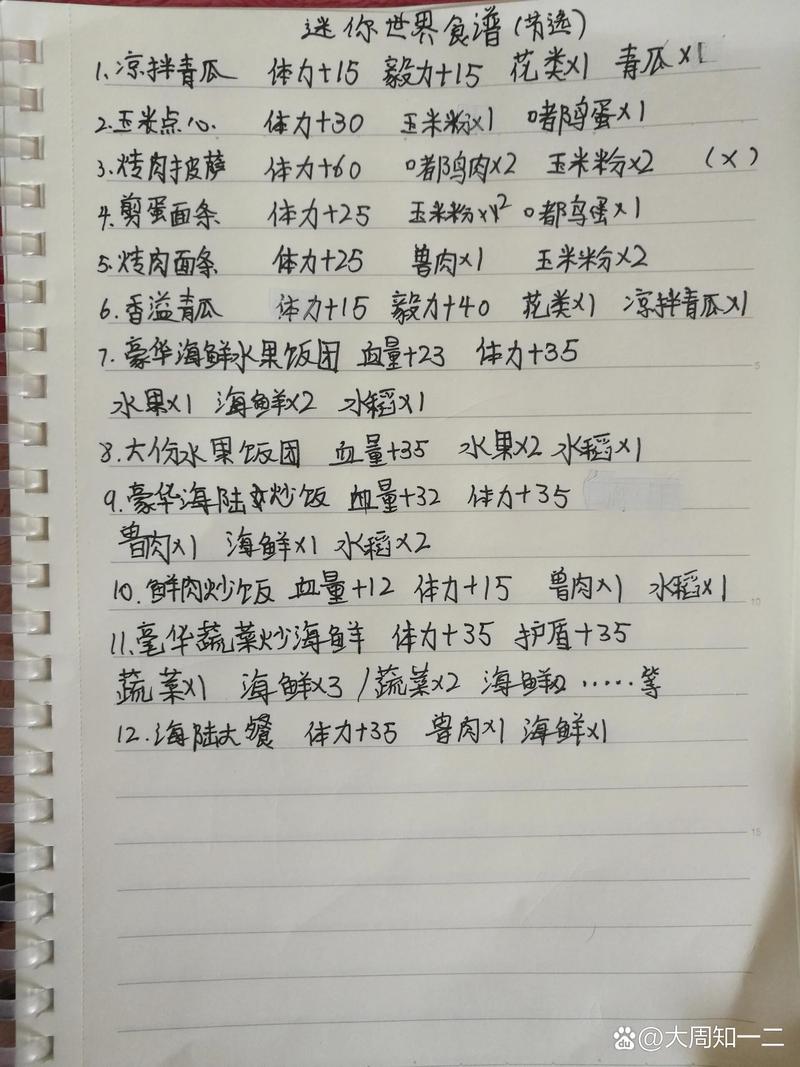 迷你世界食谱(节选)
1.凉拌青瓜 体力+15 毅力+15 花类×1 青瓜×1
2.玉米点心. 体力+30 玉米粉×1 嘟鸟蛋×1
3.烤肉披萨 体力+60 嘟鸟肉×2 玉米粉×2 (×)
4.剪蛋面条 体力+25 玉米粉×2 嘟鸟蛋×1
5.烤肉面条 体力+25 兽肉×1 玉米粉×2
6.香溢青瓜 体力+15 毅力+40 花类×1 凉拌青瓜×1
7.豪华海鲜水果饭团 血量+23 体力+35
水果×1 海鲜×2 水稻×1
8.大份水果饭团 血量+35 水果×2 水稻×1
9.豪华海陆炒饭 血量+32 体力+35
兽肉×1 海鲜×1 水稻×2
10.鲜肉炒饭 血量+12 体力+15 兽肉×1 水稻×1
11.毫华蔬菜炒海鲜 体力+35 护盾+35
蔬菜×1 海鲜×3 /蔬菜×2 海鲜×2 ……等
12.海陆大餐 体力+35 兽肉×1 海鲜×1
5
10
15
du @大周知一二